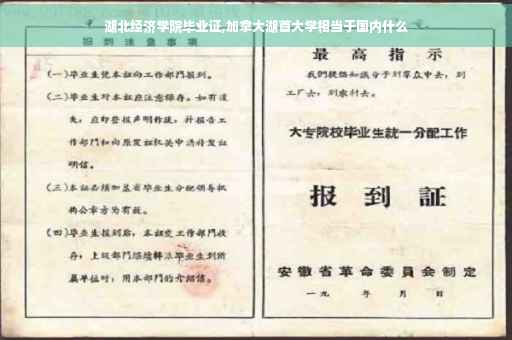 湖北经济学院毕业证,加拿大湖首大学相当于国内什么
报到注意事项
(一)毕业生凭本证向工作部门报到。
(二)毕业生对本证应注意保存。如有遗
失,应即登报声明作废,并报告工
作部门和向原发证机关申请补发证
明信。
(三)本证必须加盖省毕业生分配领导机
构公章方为有效。
(四)毕业生报到后,本证交工作部门收
存;上级部门继续转派毕业生到所
属单位时,用本部门的介绍信。
最高指示
我们提倡知识分子到群众中去,到
工厂去,到农村去。
大专院校毕业生統一分配工作
报到証
安徽省革命委員会制定
一九 年 月 日